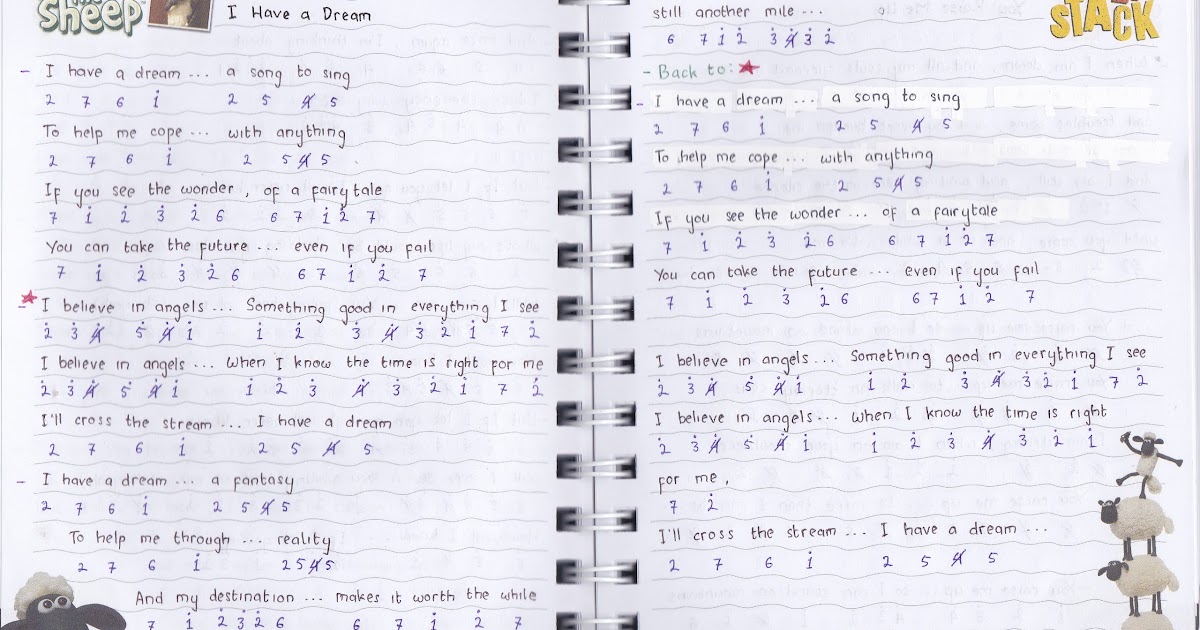 Sheep
I Have a Dream
- I have a dream ... a song to sing
2 7 6 1̇ 2 5 4̸ 5
To help me cope ... with anything
2 7 6 1̇ 2 5 4̸ 5
If you see the wonder, of a fairytale
7 1̇ 2̇ 3̇ 2̇ 6 6 7 1̇ 2̇ 7
You can take the future ... even if you fail
7 1̇ 2̇ 3̇ 2̇ 6 6 7 1̇ 2̇ 7
- I believe in angels ... Something good in everything I see
2̇ 3̇ 4̸̇ 5̇ 4̸̇ 1̇ 1̇ 2̇ 3̇ 4̸̇ 3̇ 2̇ 1̇ 7 2̇
I believe in angels ... When I know the time is right for me
2̇ 3̇ 4̸̇ 5̇ 4̸̇ 1̇ 1̇ 2̇ 3̇ 4̸̇ 3̇ 2̇ 1̇ 7 2̇
I'll cross the stream ... I have a dream
2 7 6 1̇ 2 5 4̸ 5
- I have a dream ... a fantasy
2 7 6 1̇ 2 5 4̸ 5
To help me through ... reality
2 7 6 1̇ 2 5 4̸ 5
And my destination ... makes it worth the while
7 1̇ 2̇ 3̇ 2̇ 6 6 7 1̇ 2̇ 7
STACK
still another mile ...
6 7 1̇ 2̇ 3̇ 4̸̇ 3̇ 2̇
- Back to:
- I have a dream ... a song to sing
2 7 6 1̇ 2 5 4̸ 5
To help me cope ... with anything
2 7 6 1̇ 2 5 4̸ 5
If you see the wonder ... of a fairytale
7 1̇ 2̇ 3̇ 2̇ 6 6 7 1̇ 2̇ 7
You can take the future ... even if you fail
7 1̇ 2̇ 3̇ 2̇ 6 6 7 1̇ 2̇ 7
I believe in angels ... Something good in everything I see
2̇ 3̇ 4̸̇ 5̇ 4̸̇ 1̇ 1̇ 2̇ 3̇ 4̸̇ 3̇ 2̇ 1̇ 7 2̇
I believe in angels ... when I know the time is right
2̇ 3̇ 4̸̇ 5̇ 4̸̇ 1̇ 1̇ 2̇ 3̇ 4̸̇ 3̇ 2̇ 1̇
for me,
7 2̇
I'll cross the stream ... I have a dream ...
2 7 6 1̇ 2 5 4̸ 5